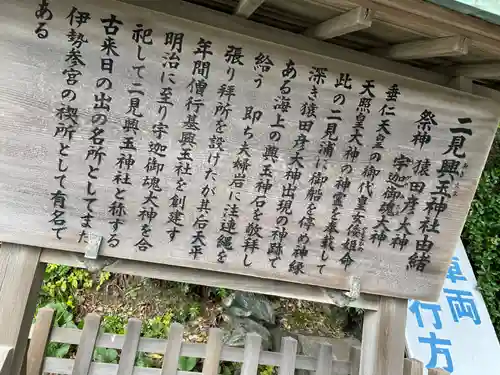 二見興玉神社由緒
祭神 猿田彦大神
宇迦御魂大神
垂仁天皇の御代皇女倭姫命
天照皇大神の神霊を奉戴して
此の二見浦に御船を停め神縁
深き猿田彦大神出現の神跡で
ある海上の興玉神石を敬拝し
給う 即ち夫婦岩に注連縄を
張り拝所を設けたが其后天平
年間僧行基興玉社を創建す
明治に至り宇迦御魂大神を合
祀して二見興玉神社と称する
古来日の出の名所としてまた
伊勢参宮の禊所として有名で
ある
車両
行方